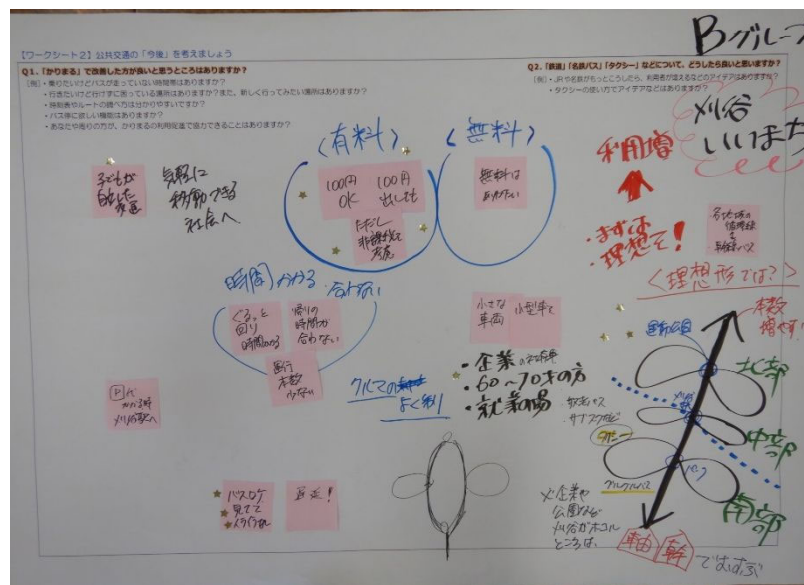 Bグループ
【ワークシート2】公共交通の「今後」を考えましょう
Q1.「かりまる」で改善した方が良いと思うところはありますか？
【例】・乗りたいけどバスが走っていない時間帯はありますか？
・行きたいけど行けずに困っている場所はありますか？また、新しく行ってみたい場所はありますか？
・時刻表やルートの調べ方は分かりやすいですか？
・バス停に欲しい機能はありますか？
・あなたや周りの方が、かりまるの利用促進で協力できることはありますか？
Q2.「鉄道」「名鉄バス」「タクシー」などについて、どうしたら良いと思いますか？
【例】・JRや名鉄がもっとこうしたら、利用者が増えるなどのアイデアはありますか？
・タクシーの使い方でアイデアなどはありますか？
刈谷
いいまち
子どもが
自立した
気軽に
移動できる
社会へ
〈有料〉
100円
OK
100円
出しても
ただし
〈無料〉
無料は
ありがたい
利用増
・まずは
・理想を！
〈理想形では？〉
本数
増やす！
時間かかる
合わない
ぐるっと
回り
時間かかる
帰りの
時間が
合わない
運行
本数
少ない
小さな
車両
小型車で
クルマの
よく利
・企業
・60〜70才の方
・就業の場
運動公園
北部
中部
南部
バスロケ
見てて
イライラする
※企業や
公園など
刈谷がホコル
ところは、
軸
幹
でむすぶ